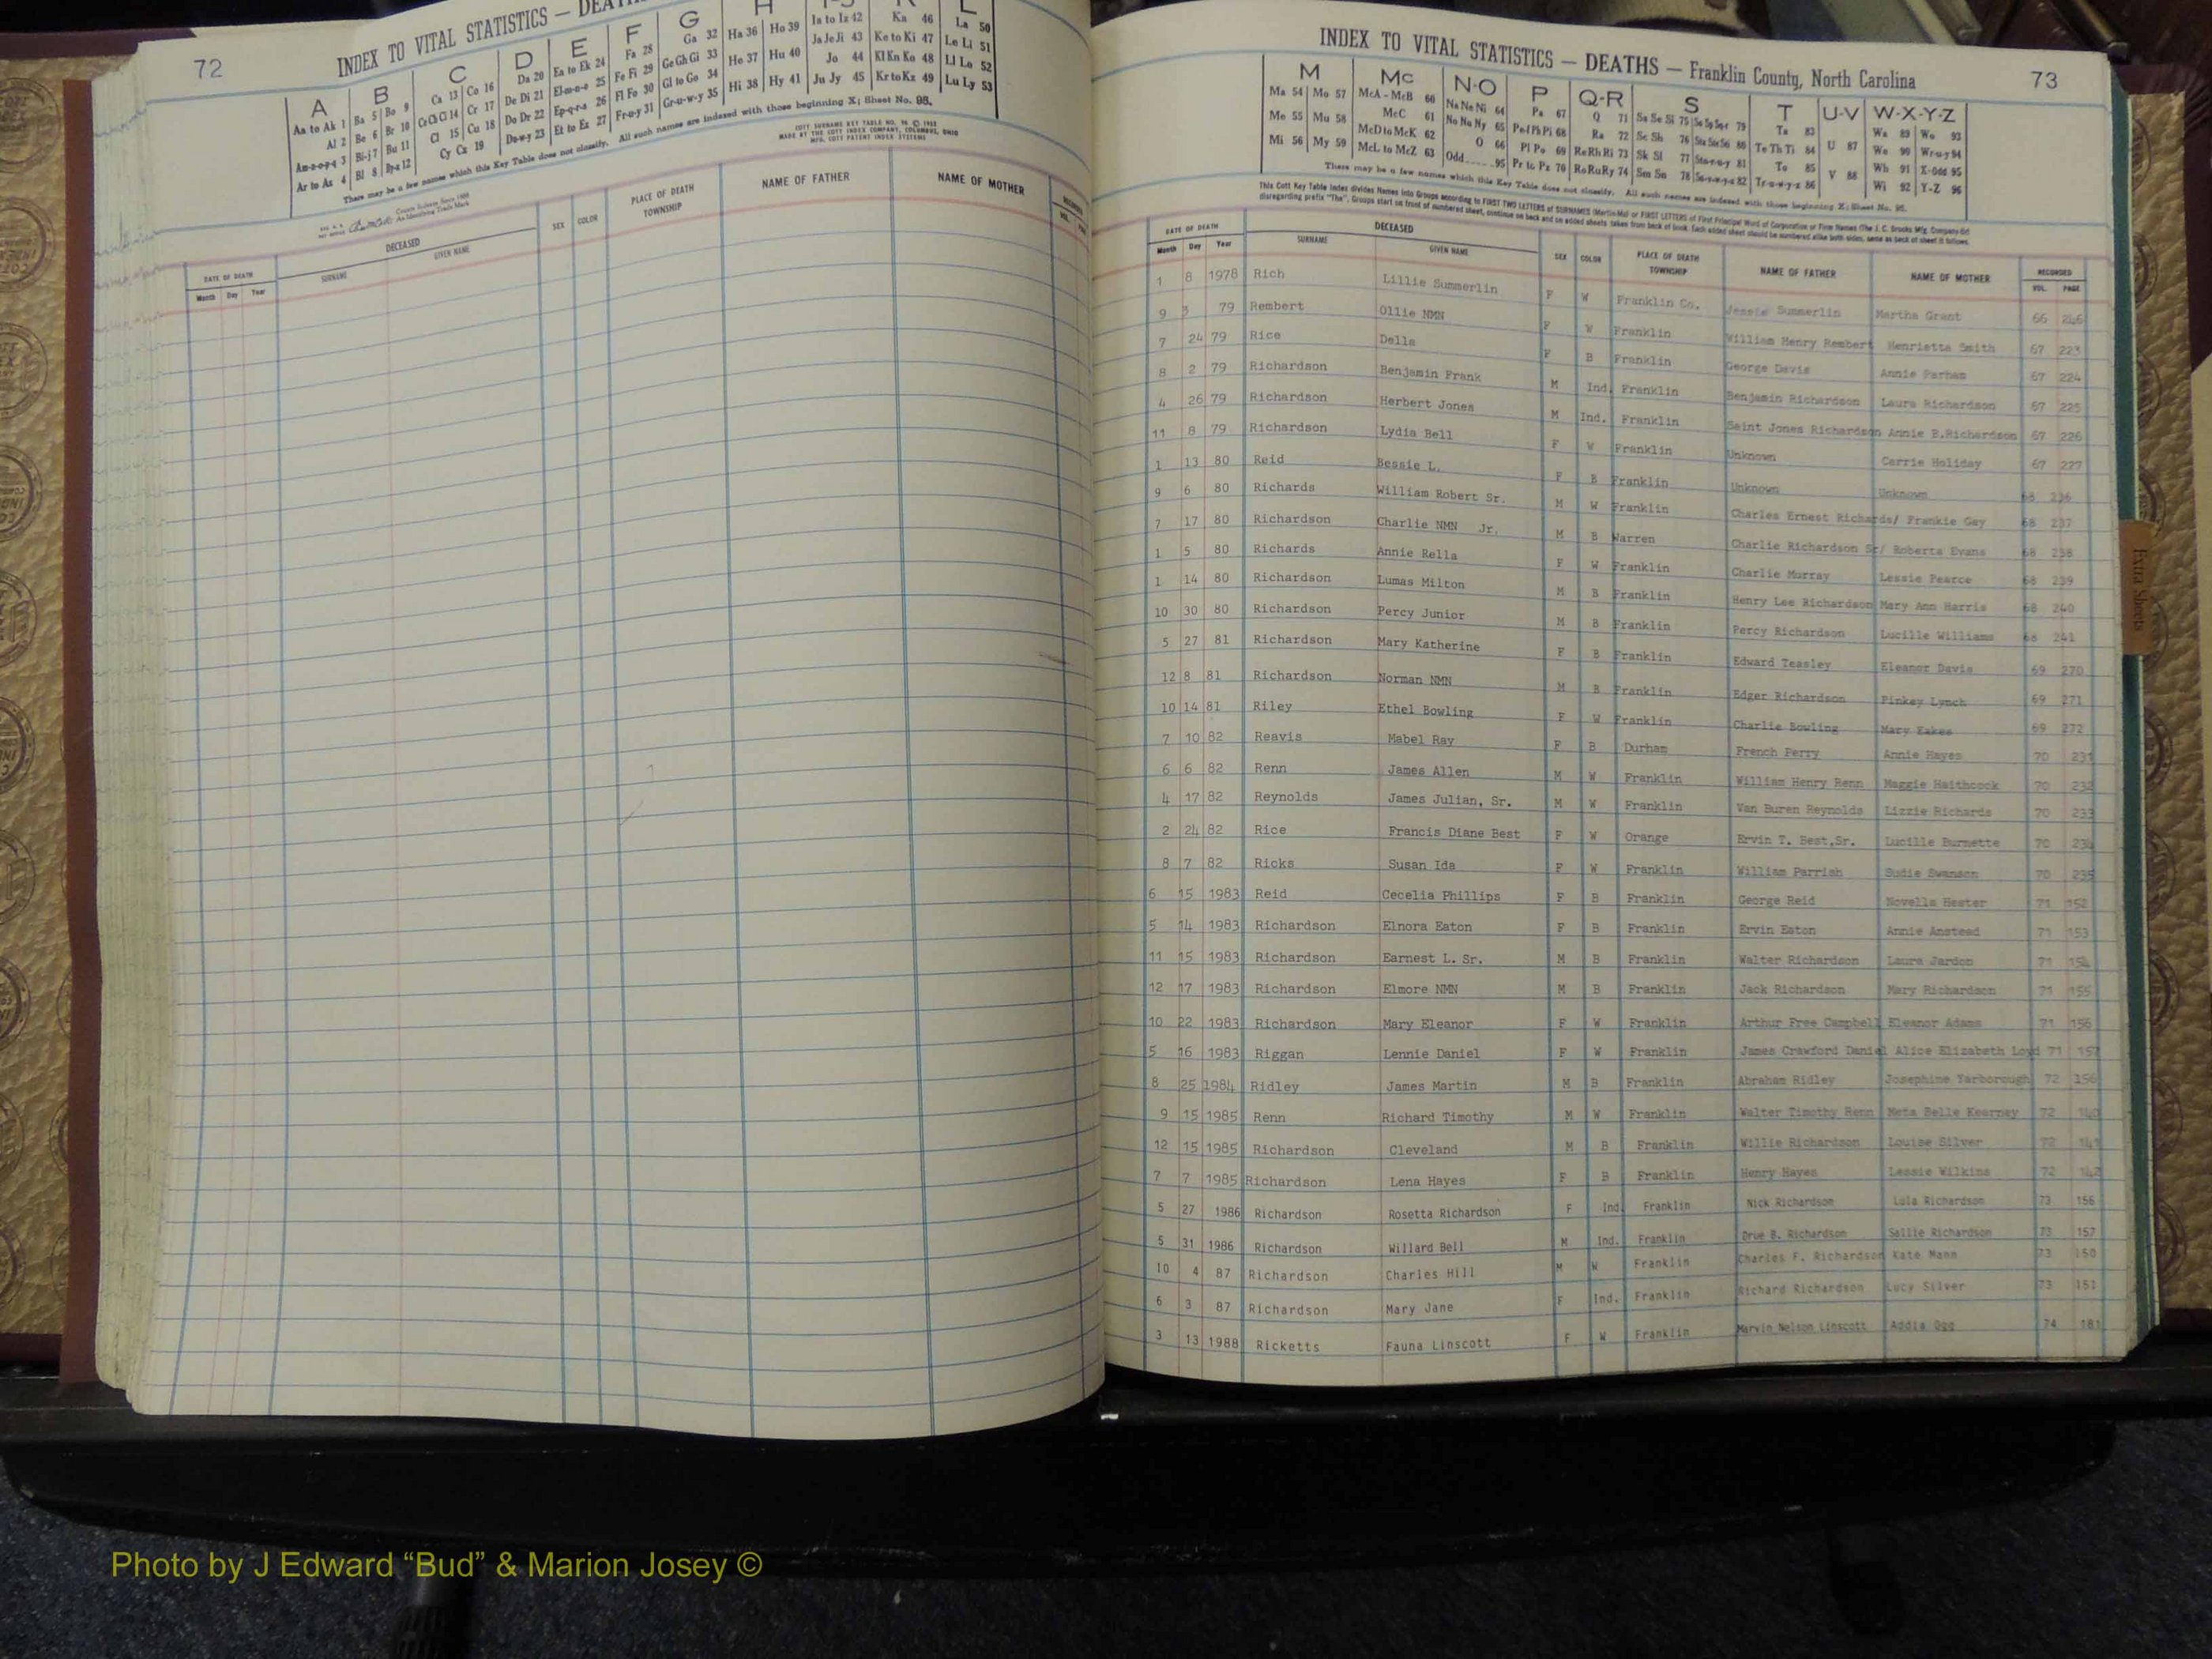 72
INDEX TO VITAL STATISTICS — DEATH
A B C D E F G H I-J K L
Aa to Ak 1 Ba 5 Bo 9 Ca 13 Co 16 Da 20 Ea to Ek 24 Fa 28 Ga 32 Ha 36 Ho 39 Ia to Iz 42 Ka 46 La 50
Al 2 Be 6 Br 10 Ce Ch Ci 14 Cr 17 De Di 21 El-m-n-o 25 Fe Fi 29 Ge Gh Gi 33 He 37 Hu 40 Ja Je Ji 43 Ke to Ki 47 Le Li 51
Am-n-o-p-q 3 Bi-j 7 Bu 11 Cl 15 Cu 18 Do Dr 22 Ep-q-r-s 26 Fl Fo 30 Gl to Go 34 Hi 38 Hy 41 Jo 44 Kl Kn Ko 48 Ll Lo 52
Ar to Az 4 Bl 8 By-z 12 Cy Cz 19 Du-w-y 23 Et to Ez 27 Fr-u-y 31 Gr-u-w-y 35 Ju Jy 45 Kr to Kz 49 Lu Ly 53
There may be a few names which this Key Table does not classify. All such names are indexed with those beginning X; Sheet No. 95.
COTT SURNAME KEY TABLE NO. 96 ©
MADE BY THE COTT INDEX COMPANY, COLUMBUS, OHIO
MFD. COTT PATENT INDEX SYSTEMS
DATE OF DEATH DECEASED SEX COLOR PLACE OF DEATH TOWNSHIP NAME OF FATHER NAME OF MOTHER RECORDED
Month Day Year SURNAME GIVEN NAME VOL.
INDEX TO VITAL STATISTICS — DEATHS — Franklin County, North Carolina 73
M Mc N-O P Q-R S T U-V W-X-Y-Z
Ma 54 Mo 57 McA - McB 60 Na Ne Ni 64 Pa 67 Q 71 Sa Se Si 75 So Sp Sq-r 79 Ta 83 U 87 Wa 89 Wo 93
Me 55 Mu 58 McC 61 No Nu Ny 65 Pe-f Ph Pi 68 Ra 72 Sc Sh 76 Sta Ste Sti 80 Te Th Ti 84 V 88 We 90 Wr-u-y 94
Mi 56 My 59 McD to McK 62 O 66 Pl Po 69 Re Rh Ri 73 Sk Sl 77 Sto-r-u-y 81 To 85 Wh 91 X-Odd 95
McL to McZ 63 Odd 95 Pr to Pz 70 Ro Ru Ry 74 Sm Sn 78 Su-v-w-y-z 82 Tr-u-w-y-z 86 Wi 92 Y-Z 96
There may be a few names which this Key Table does not classify. All such names are indexed with those beginning X; Sheet No. 95.
This Cott Key Table Index divides Names into Groups according to FIRST TWO LETTERS of SURNAMES (Martin-Ma) or FIRST LETTERS of First Principal Word of Corporation or Firm Names (The J. C. Brooks Mfg. Company-Br)
disregarding prefix "The". Groups start on front of numbered sheet, continue on back and on added sheets taken from back of book. Each added sheet should be numbered alike both sides, same as back of sheet it follows.
DATE OF DEATH DECEASED SEX COLOR PLACE OF DEATH TOWNSHIP NAME OF FATHER NAME OF MOTHER RECORDED
Month Day Year SURNAME GIVEN NAME VOL. PAGE
1 8 1978 Rich Lillie Summerlin F W Franklin Co. Jessie Summerlin Martha Grant 66 246
9 3 79 Rembert Ollie NMN F W Franklin William Henry Rembert Henrietta Smith 67 223
7 24 79 Rice Della F B Franklin George Davis Annie Parham 67 224
8 2 79 Richardson Benjamin Frank M Ind. Franklin Benjamin Richardson Laura Richardson 67 225
4 26 79 Richardson Herbert Jones M Ind. Franklin Saint Jones Richardson Annie B.Richardson 67 226
11 8 79 Richardson Lydia Bell F W Franklin Unknown Carrie Holiday 67 227
1 13 80 Reid Bessie L. F B Franklin Unknown Unknown 68 236
9 6 80 Richards William Robert Sr. M W Franklin Charles Ernest Richards/ Frankie Gay 68 237
7 17 80 Richardson Charlie NMN Jr. M B Warren Charlie Richardson Sr/ Roberta Evans 68 238
1 5 80 Richards Annie Rella F W Franklin Charlie Murray Lessie Pearce 68 239
1 14 80 Richardson Lumas Milton M B Franklin Henry Lee Richardson Mary Ann Harris 68 240
10 30 80 Richardson Percy Junior M B Franklin Percy Richardson Lucille Williams 68 241
5 27 81 Richardson Mary Katherine F B Franklin Edward Teasley Eleanor Davis 69 270
12 8 81 Richardson Norman NMN M B Franklin Edger Richardson Pinkey Lynch 69 271
10 14 81 Riley Ethel Bowling F W Franklin Charlie Bowling Mary Eakes 69 272
7 10 82 Reavis Mabel Ray F B Durham French Perry Annie Hayes 70 231
6 6 82 Renn James Allen M W Franklin William Henry Renn Maggie Haithcock 70 232
4 17 82 Reynolds James Julian, Sr. M W Franklin Van Buren Reynolds Lizzie Richards 70 233
2 24 82 Rice Francis Diane Best F W Orange Ervin T. Best,Sr. Lucille Burnette 70 234
8 7 82 Ricks Susan Ida F W Franklin William Parrish Sudie Swanson 70 235
6 15 1983 Reid Cecelia Phillips F B Franklin George Reid Novella Hester 71 152
5 14 1983 Richardson Elnora Eaton F B Franklin Ervin Eaton Annie Anstead 71 153
11 15 1983 Richardson Earnest L. Sr. M B Franklin Walter Richardson Laura Jardon 71 154
12 17 1983 Richardson Elmore NMN M B Franklin Jack Richardson Mary Richardson 71 155
10 22 1983 Richardson Mary Eleanor F W Franklin Arthur Free Campbell Eleanor Adams 71 156
5 16 1983 Riggan Lennie Daniel F W Franklin James Crawford Daniel Alice Elizabeth Loyd 71 157
8 25 1984 Ridley James Martin M B Franklin Abraham Ridley Josephine Yarborough 72 156
9 15 1985 Renn Richard Timothy M W Franklin Walter Timothy Renn Meta Belle Kearney 72 140
12 15 1985 Richardson Cleveland M B Franklin Willie Richardson Louise Silver 72 141
7 7 1985 Richardson Lena Hayes F B Franklin Henry Hayes Lessie Wilkins 72 142
5 27 1986 Richardson Rosetta Richardson F Ind. Franklin Nick Richardson Lula Richardson 73 156
5 31 1986 Richardson Willard Bell M Ind. Franklin Drue B. Richardson Sallie Richardson 73 157
10 4 87 Richardson Charles Hill M W Franklin Charles F. Richardson Kate Mann 73 150
6 3 87 Richardson Mary Jane F Ind. Franklin Richard Richardson Lucy Silver 73 151
3 13 1988 Ricketts Fauna Linscott F W Franklin Marvin Nelson Linscott Addie Ogg 74 181
Extra Sheets
Photo by J Edward “Bud” & Marion Josey ©